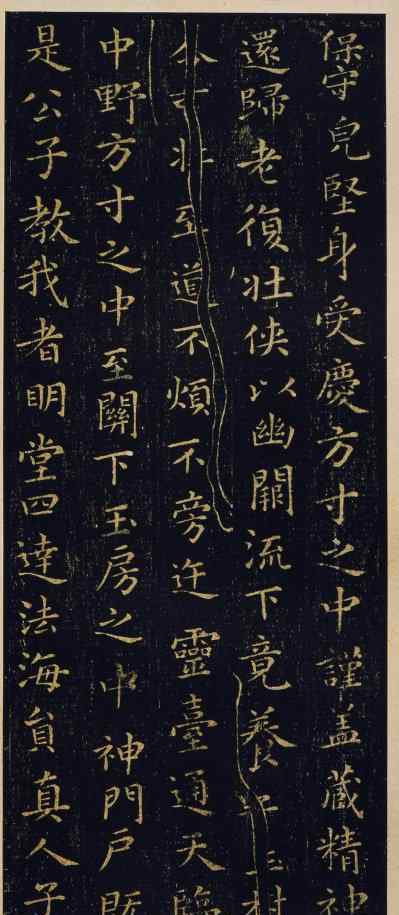 保守皃堅身受慶方寸之中謹盖藏精神
還歸老復壮侠以幽闕流下竟養子玉樹
令可壮至道不煩不旁迕靈臺通天臨
中野方寸之中至關下玉房之中神門戶既
是公子教我者明堂四達法海貟真人子